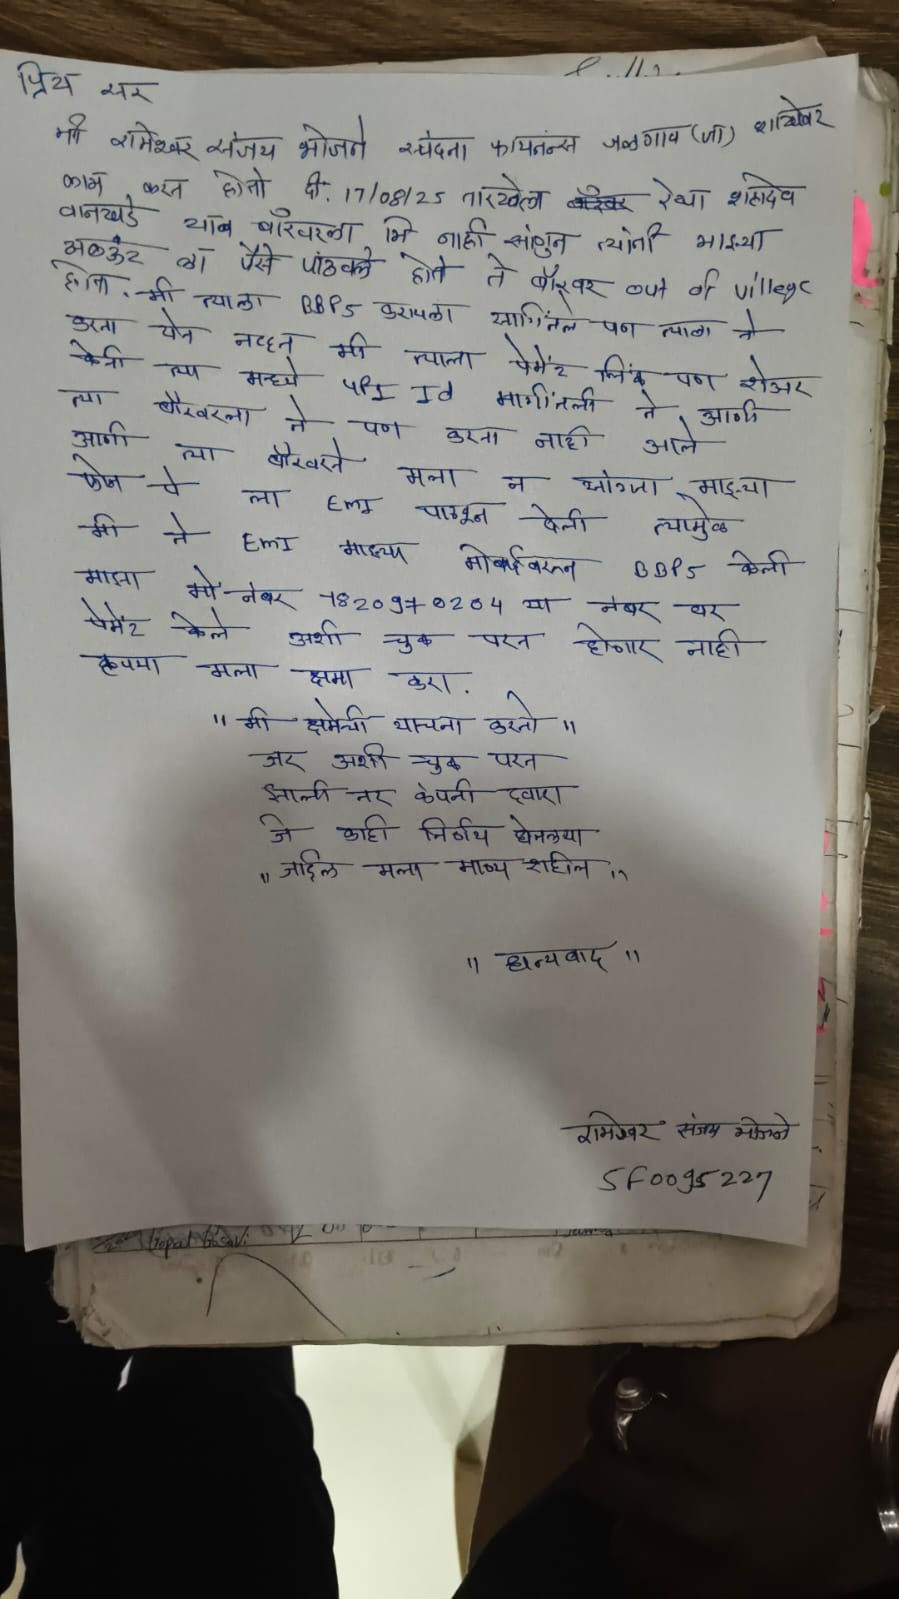 प्रिय सर
मी रामेश्वर संजय भोजने स्पंदना फायनंन्स जळगाव (जा) शाखेवर
काम करत होतो दि. 17/08/25 तारखेला रेखा शहादेव
वानखडे याब बॉरवरला मि नाही सांगुन त्यांनी माझ्या
अकऊंट ला पैसे पाठवले होते ते बॉरवर out of villege
होता. मी त्याला BBPS करायला सागिंतले पण त्याला ते
करता येत नव्हत मी त्याला पेमेंट लिंक पण शेअर
केली त्या मध्ये UPI Id मागींतली ते आणी
त्या बॉरवरला ते पण करता नाही आले
आणी त्या बॉरवरने मला न सांगता माझ्या
फोन पे ला EMI पाठवुन देली त्यामुळे
मी ते EMI माझ्या मोबाईलवरुन BBPS केली
माझा मो-नंबर 7820970204 या नंबर वर
पेमेंट केले अशी चुक परत होणार नाही
कृपया मला क्षमा करा.
" मी क्षमेची याचना करतो "
जर अशी चुक परत
झाली तर कंपनी द्वारा
जे काही निर्णय घेतलया
" जाईल मला मान्य राहील "
" धन्यवाद "
रामेश्वर संजय भोजने
SF0095227
Gopal Gosavi